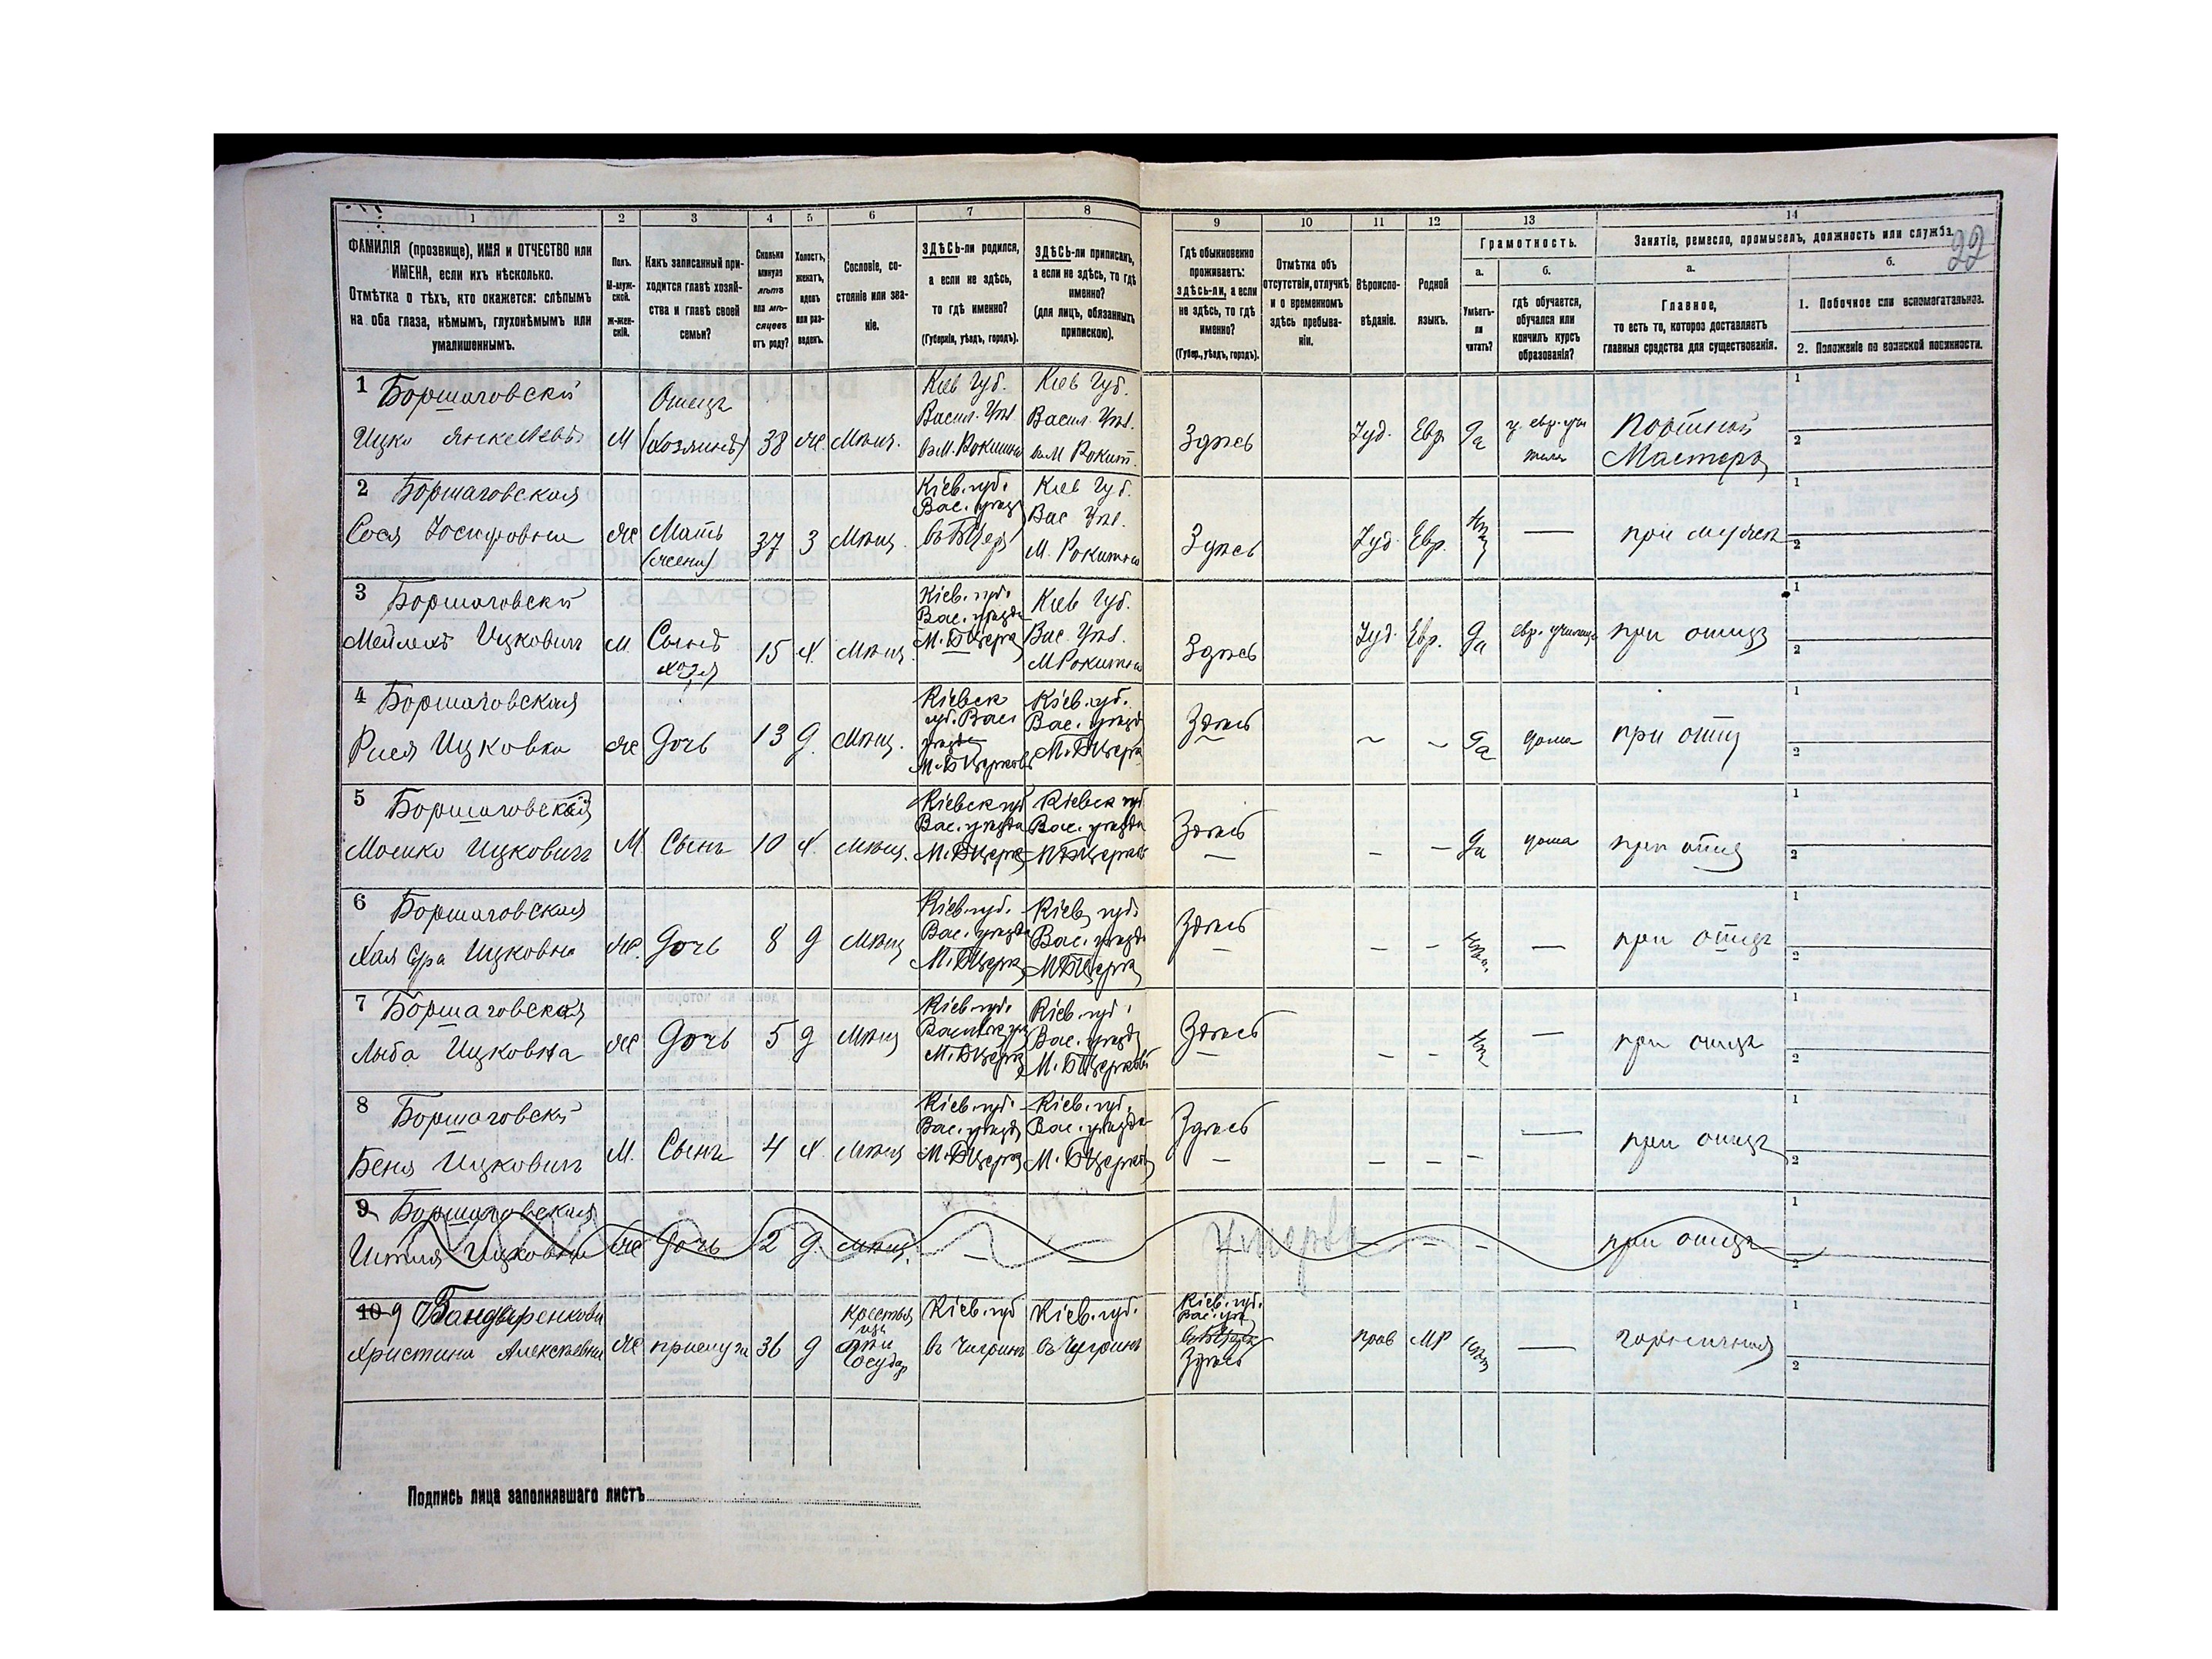 22
1
ФАМИЛІЯ (прозвище), ИМЯ и ОТЧЕСТВО или
ИМЕНА, если ихъ нѣсколько.
Отмѣтка о тѣхъ, кто окажется: слѣпымъ
на оба глаза, нѣмымъ, глухонѣмымъ или
умалишеннымъ.
2
Полъ.
М-муж-
ской.
Ж-жен-
скій.
3
Какъ записанный при-
ходится главѣ хозяй-
ства и главѣ своей
семьи?
4
Сколько
минуло
лѣтъ
или мѣ-
сяцевъ
отъ роду?
5
Холостъ,
женатъ,
вдовъ
или раз-
веденъ.
6
Сословіе, со-
стояніе или зва-
ніе.
7
ЗДѢСЬ-ли родился,
а если не здѣсь,
то гдѣ именно?
(Губернія, уѣздъ, городъ).
8
ЗДѢСЬ-ли приписанъ,
а если не здѣсь, то гдѣ
именно?
(для лицъ, обязанныхъ
припискою).
9
Гдѣ обыкновенно
проживаетъ:
здѣсь-ли, а если
не здѣсь, то гдѣ
именно?
(Губер., уѣздъ, городъ).
10
Отмѣтка объ
отсутствіи, отлучкѣ
и о временномъ
здѣсь пребыва-
ніи.
11
Вѣроиспо-
вѣданіе.
12
Родной
языкъ.
13
Грамотность.
а.
Умѣетъ-
ли
читать?
б.
гдѣ обучается,
обучался или
кончилъ курсъ
образованія?
14
Занятіе, ремесло, промыселъ, должность или служба.
а.
Главное,
то есть то, которое доставляетъ
главныя средства для существованія.
б.
1. Побочное или вспомогательное.
2. Положеніе по воинской повинности.
1 Боршаговскій
Ицко Янкелевъ
М
Отецъ
(хозяинъ)
38
Ж.
Мѣщ.
Кіев Губ.
Васил. Уѣз.
въ М. Рокитно
Кіев Губ.
Васил. Уѣз.
въ М Рокит.
Здѣсь
Іуд.
Евр
Да
Портной
Мастеръ
1
2
2 Боршаговская
Сося Іосифовна
Ж
Мать
(жена)
37
З
Мѣщ.
Кіев. губ.
Вас. уѣзд
въ Б Цер
Кіев Губ.
Вас Уѣз.
М. Рокитно
Здѣсь
Іуд.
Евр.
Нѣт
—
при мужѣ
1
2
3 Боршаговскій
Мейлехъ Ицковичъ
М.
Сынъ
хозя
15
Х.
Мѣщ.
Кіев. губ.
Вас. уѣзда
М. Б Церка
Кіев Губ.
Вас. Уѣз.
М Рокитно
Здѣсь
Іуд.
Евр.
Да
евр. училище
при отцѣ
1
2
4 Боршаговская
Рися Ицковна
Ж
Дочь
13
Д.
Мѣщ.
Кіевск
губ. Вас
уѣзда
М. Б Церковь
Кіев. губ.
Вас. уѣзда
М. Б Церк
Здѣсь
~
~
Да
дома
при отцѣ
1
2
5 Боршаговскій
Мошко Ицковичъ
М
Сынъ
10
Х.
Мѣщ.
Кіевск губ
Вас. уѣзда
М. Б Церк
Кіевск губ
Вас. уѣзда
М Б Церков
Здѣсь
—
—
Да
дома
при отцѣ
1
2
6 Боршаговская
Хая Сура Ицковна
Ж.
Дочь
8
Д
Мѣщ
Кіев. губ.
Вас. уѣзда
М. Б Церка
Кіев. губ.
Вас. уѣзда
М Б Церка
Здѣсь
—
—
Нѣт.
—
при отцѣ
1
2
7 Боршаговская
Люба Ицковна
Ж
Дочь
5
Д
Мѣщ
Кіев. губ.
М. Б Церка
Кіев. губ.
Вас. уѣзд
М. Б Церковь
Здѣсь
—
—
Нѣт
—
при отцѣ
1
2
8 Боршаговскій
Беня Ицковичъ
М.
Сынъ
4
Х.
Мѣщ
Кіев. губ.
Вас. уѣзд
М. Б Церка
Кіев. губ.
Вас. уѣзда
М. Б Церков
Здѣсь
—
—
—
—
при отцѣ
1
2
9 Боршаговская
Ицковна
Ж
Дочь
2
Д.
Мѣщ.
—
—
Умерла
—
—
—
при отцѣ
1
2
10 9 Бандыренкова
Христина Алексѣевна
Ж
прислуга
36
Д
Кіев. губ
въ Чигринъ
Кіев. губ.
въ Чугринъ
Кіев. губ.
Вас. уѣз
Здѣсь
прав
МР
Нѣт
—
горничная
1
2
Подпись лица заполнявшаго листъ